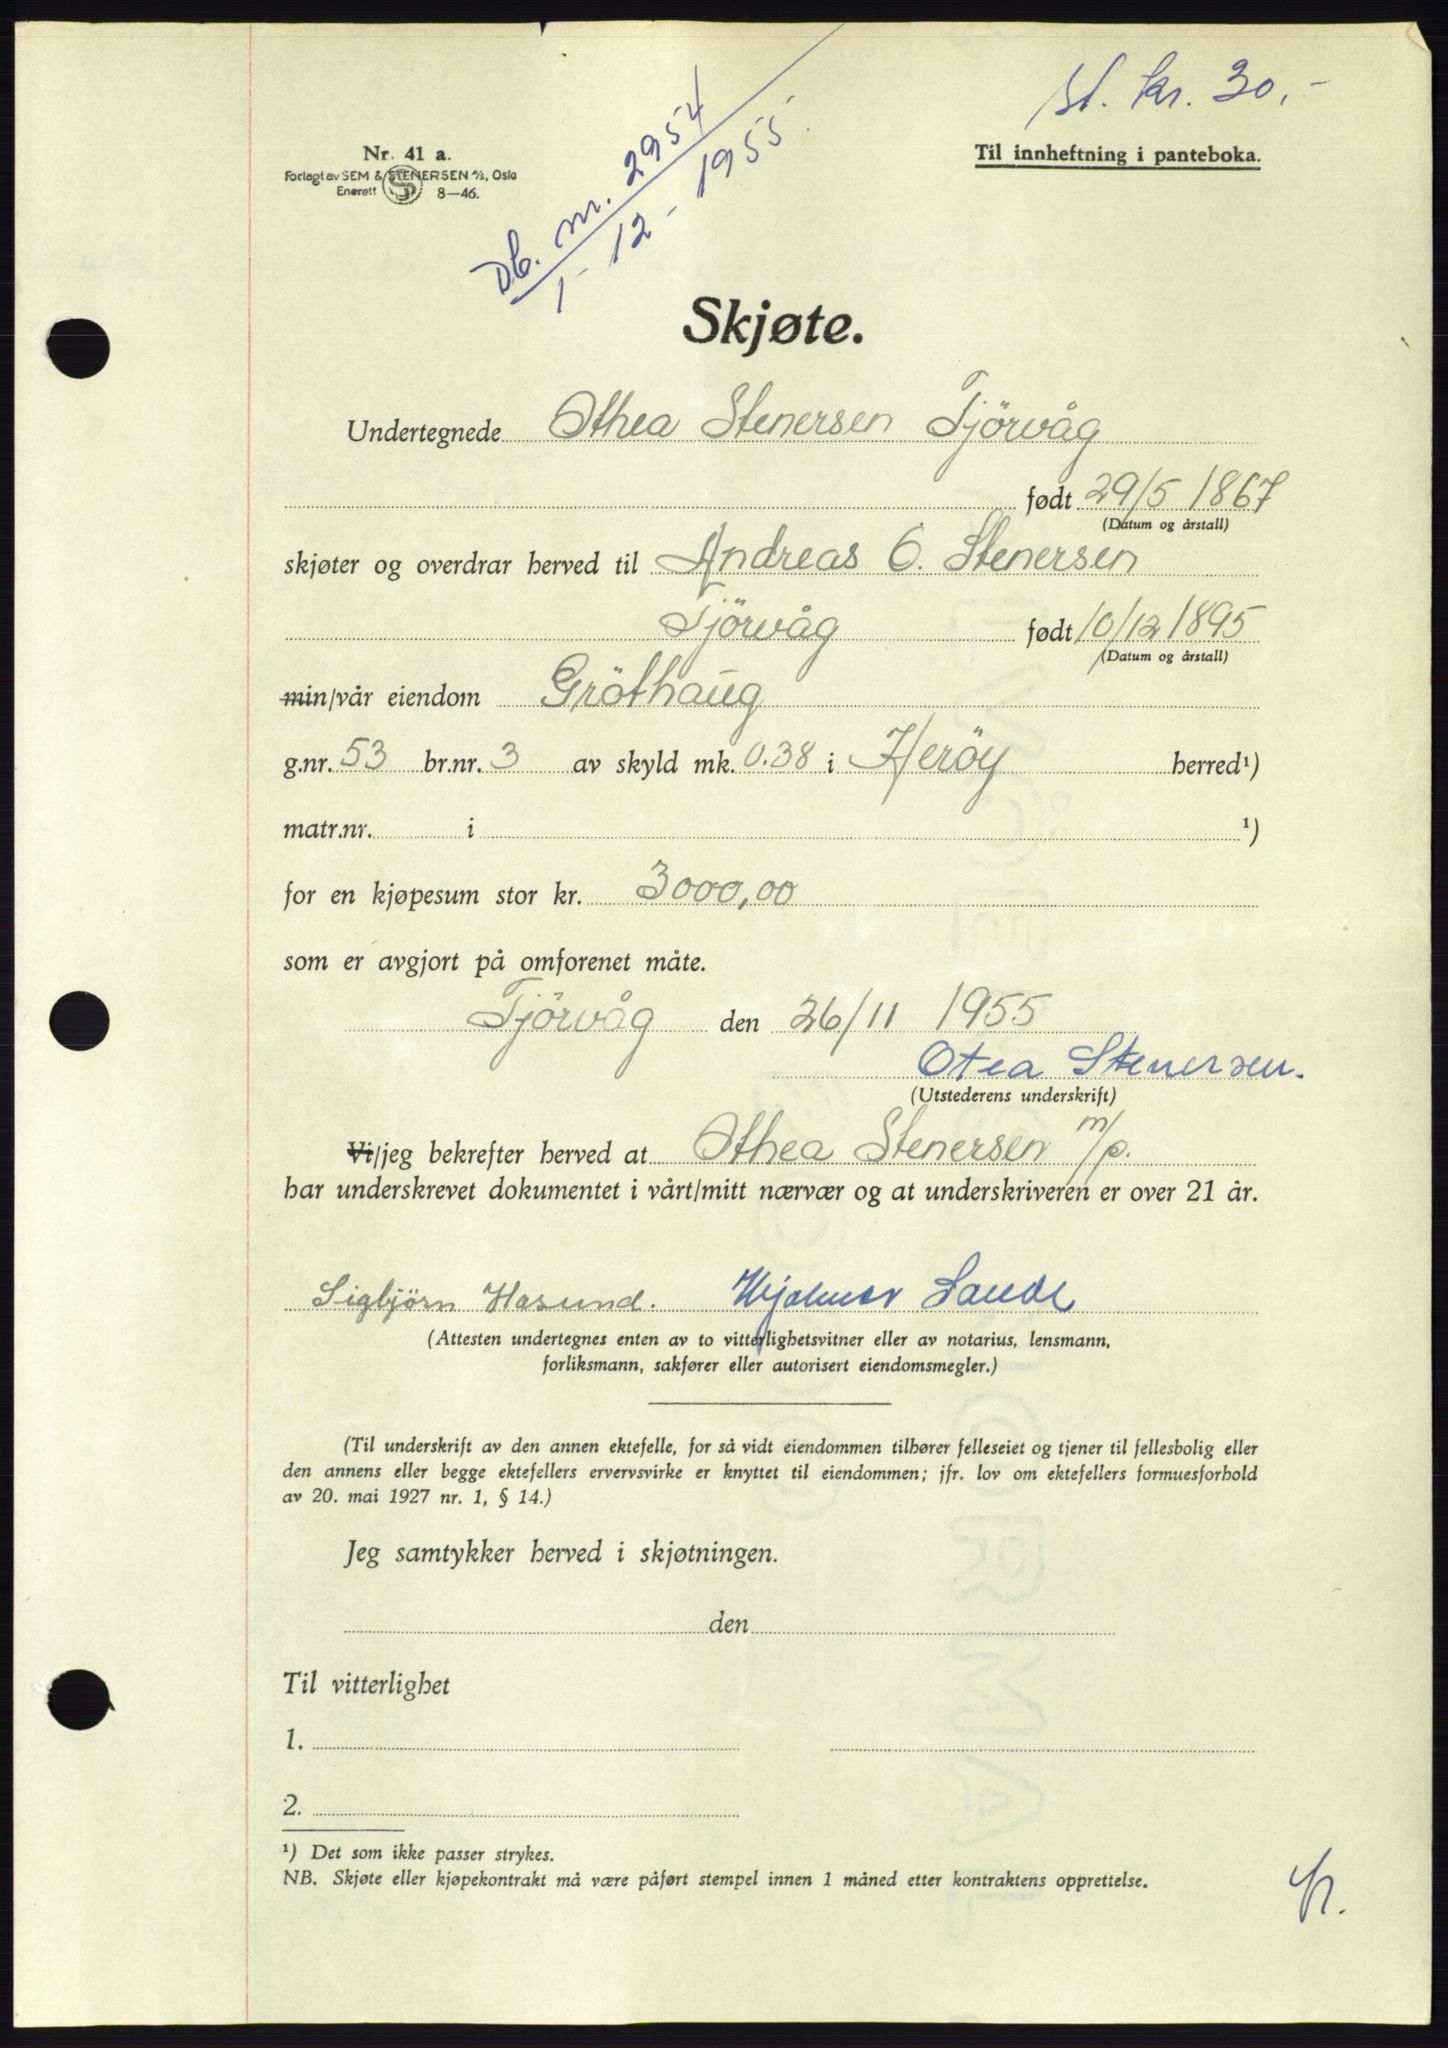 St. kr. 30,-
Db. nr. 2954
1-12-1955.
Nr. 41 a.
Forlagt av SEM & STENERSEN A/S, Oslo
Enerett 8—46.
Til innheftning i panteboka.
Skjøte.
Undertegnede Othea Stenersen Tjörvåg
født 29/5 1867
(Datum og årstall)
skjøter og overdrar herved til Andreas O. Stenersen
Tjörvåg født 10/12 1895
(Datum og årstall)
min/vår eiendom Gröthaug
g.nr. 53 br.nr. 3 av skyld mk. 0.38 i Heröy herred¹)
matr.nr. i ¹)
for en kjøpesum stor kr. 3000,00
som er avgjort på omforenet måte.
Tjörvåg den 26/11 1955
Otea Stenersen.
(Utstederens underskrift)
Vi/jeg bekrefter herved at Othea Stenersen m/p.
har underskrevet dokumentet i vårt/mitt nærvær og at underskriveren er over 21 år.
Sigbjörn Hasund. Hjalmar Sande
(Attesten undertegnes enten av to vitterlighetsvitner eller av notarius, lensmann,
forliksmann, sakfører eller autorisert eiendomsmegler.)
(Til underskrift av den annen ektefelle, for så vidt eiendommen tilhører felleseiet og tjener til fellesbolig eller
den annens eller begge ektefellers ervervsvirke er knyttet til eiendommen; jfr. lov om ektefellers formuesforhold
av 20. mai 1927 nr. 1, § 14.)
Jeg samtykker herved i skjøtningen.
den
Til vitterlighet
1.
2.
¹) Det som ikke passer strykes.
NB. Skjøte eller kjøpekontrakt må være påført stempel innen 1 måned etter kontraktens opprettelse.